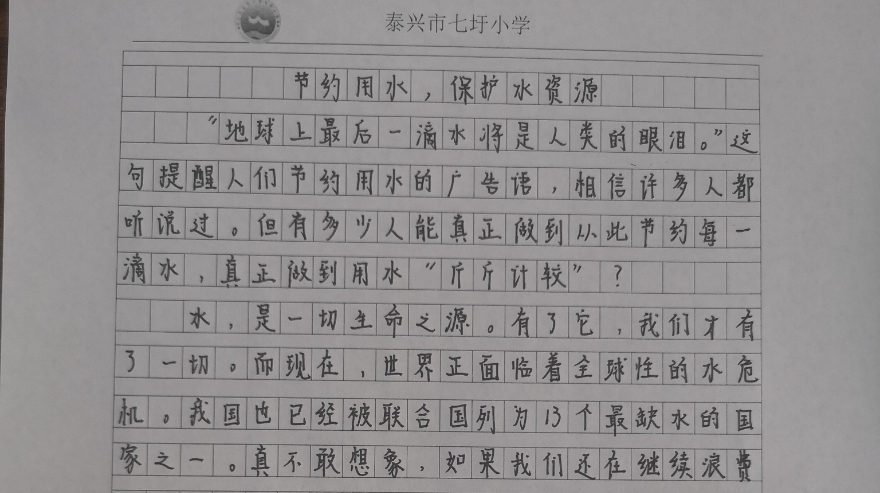 泰兴市七圩小学
节约用水，保护水资源
“地球上最后一滴水将是人类的眼泪。”这
句提醒人们节约用水的广告语，相信许多人都
听说过。但有多少人能真正做到从此节约每一
滴水，真正做到用水“斤斤计较”？
水，是一切生命之源。有了它，我们才有
了一切。而现在，世界正面临着全球性的水危
机。我国也已经被联合国列为13个最缺水的国
家之一。真不敢想象，如果我们还在继续浪费